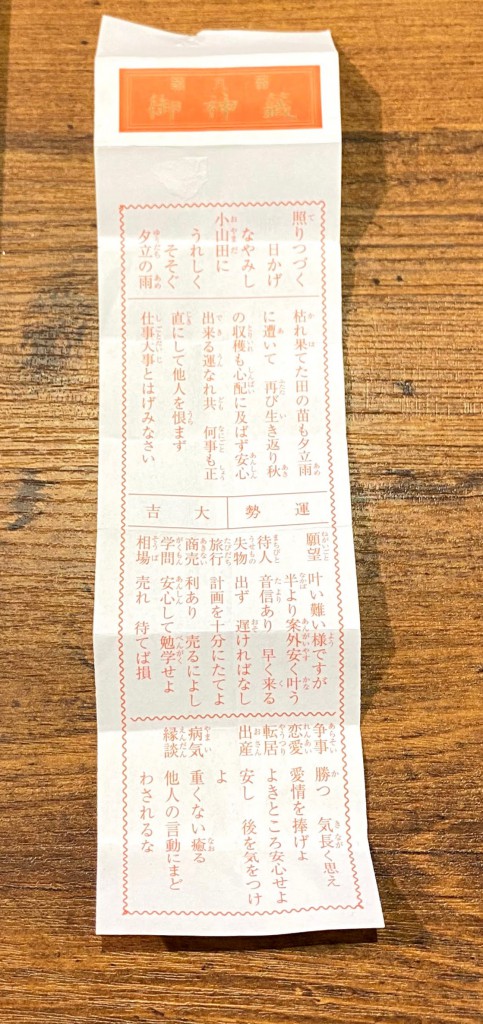 御神籤
照りつづく
日かげ
なやみし
小山田に
うれしく
そそぐ
夕立の雨
枯れ果てた田の苗も夕立雨
に遭いて　再び生き返り秋
の収穫も心配に及ばず安心
出来る運なれ共　何事も正
直にして他人を恨まず
仕事大事とはげみなさい
運勢
大吉
願望　叶い難い様ですが
半より案外安く叶う
待人　音信あり　早く来る
失物　出ず　遅ければなし
旅行　計画を十分にたてよ
商売　利あり　売るによし
学問　安心して勉学せよ
相場　売れ　待てば損
争事　勝つ　気長く思え
恋愛　愛情を捧げよ
転居　よきところ安心せよ
出産　安し　後を気をつけ
よ
病気　重くない癒る
縁談　他人の言動にまど
わされるな